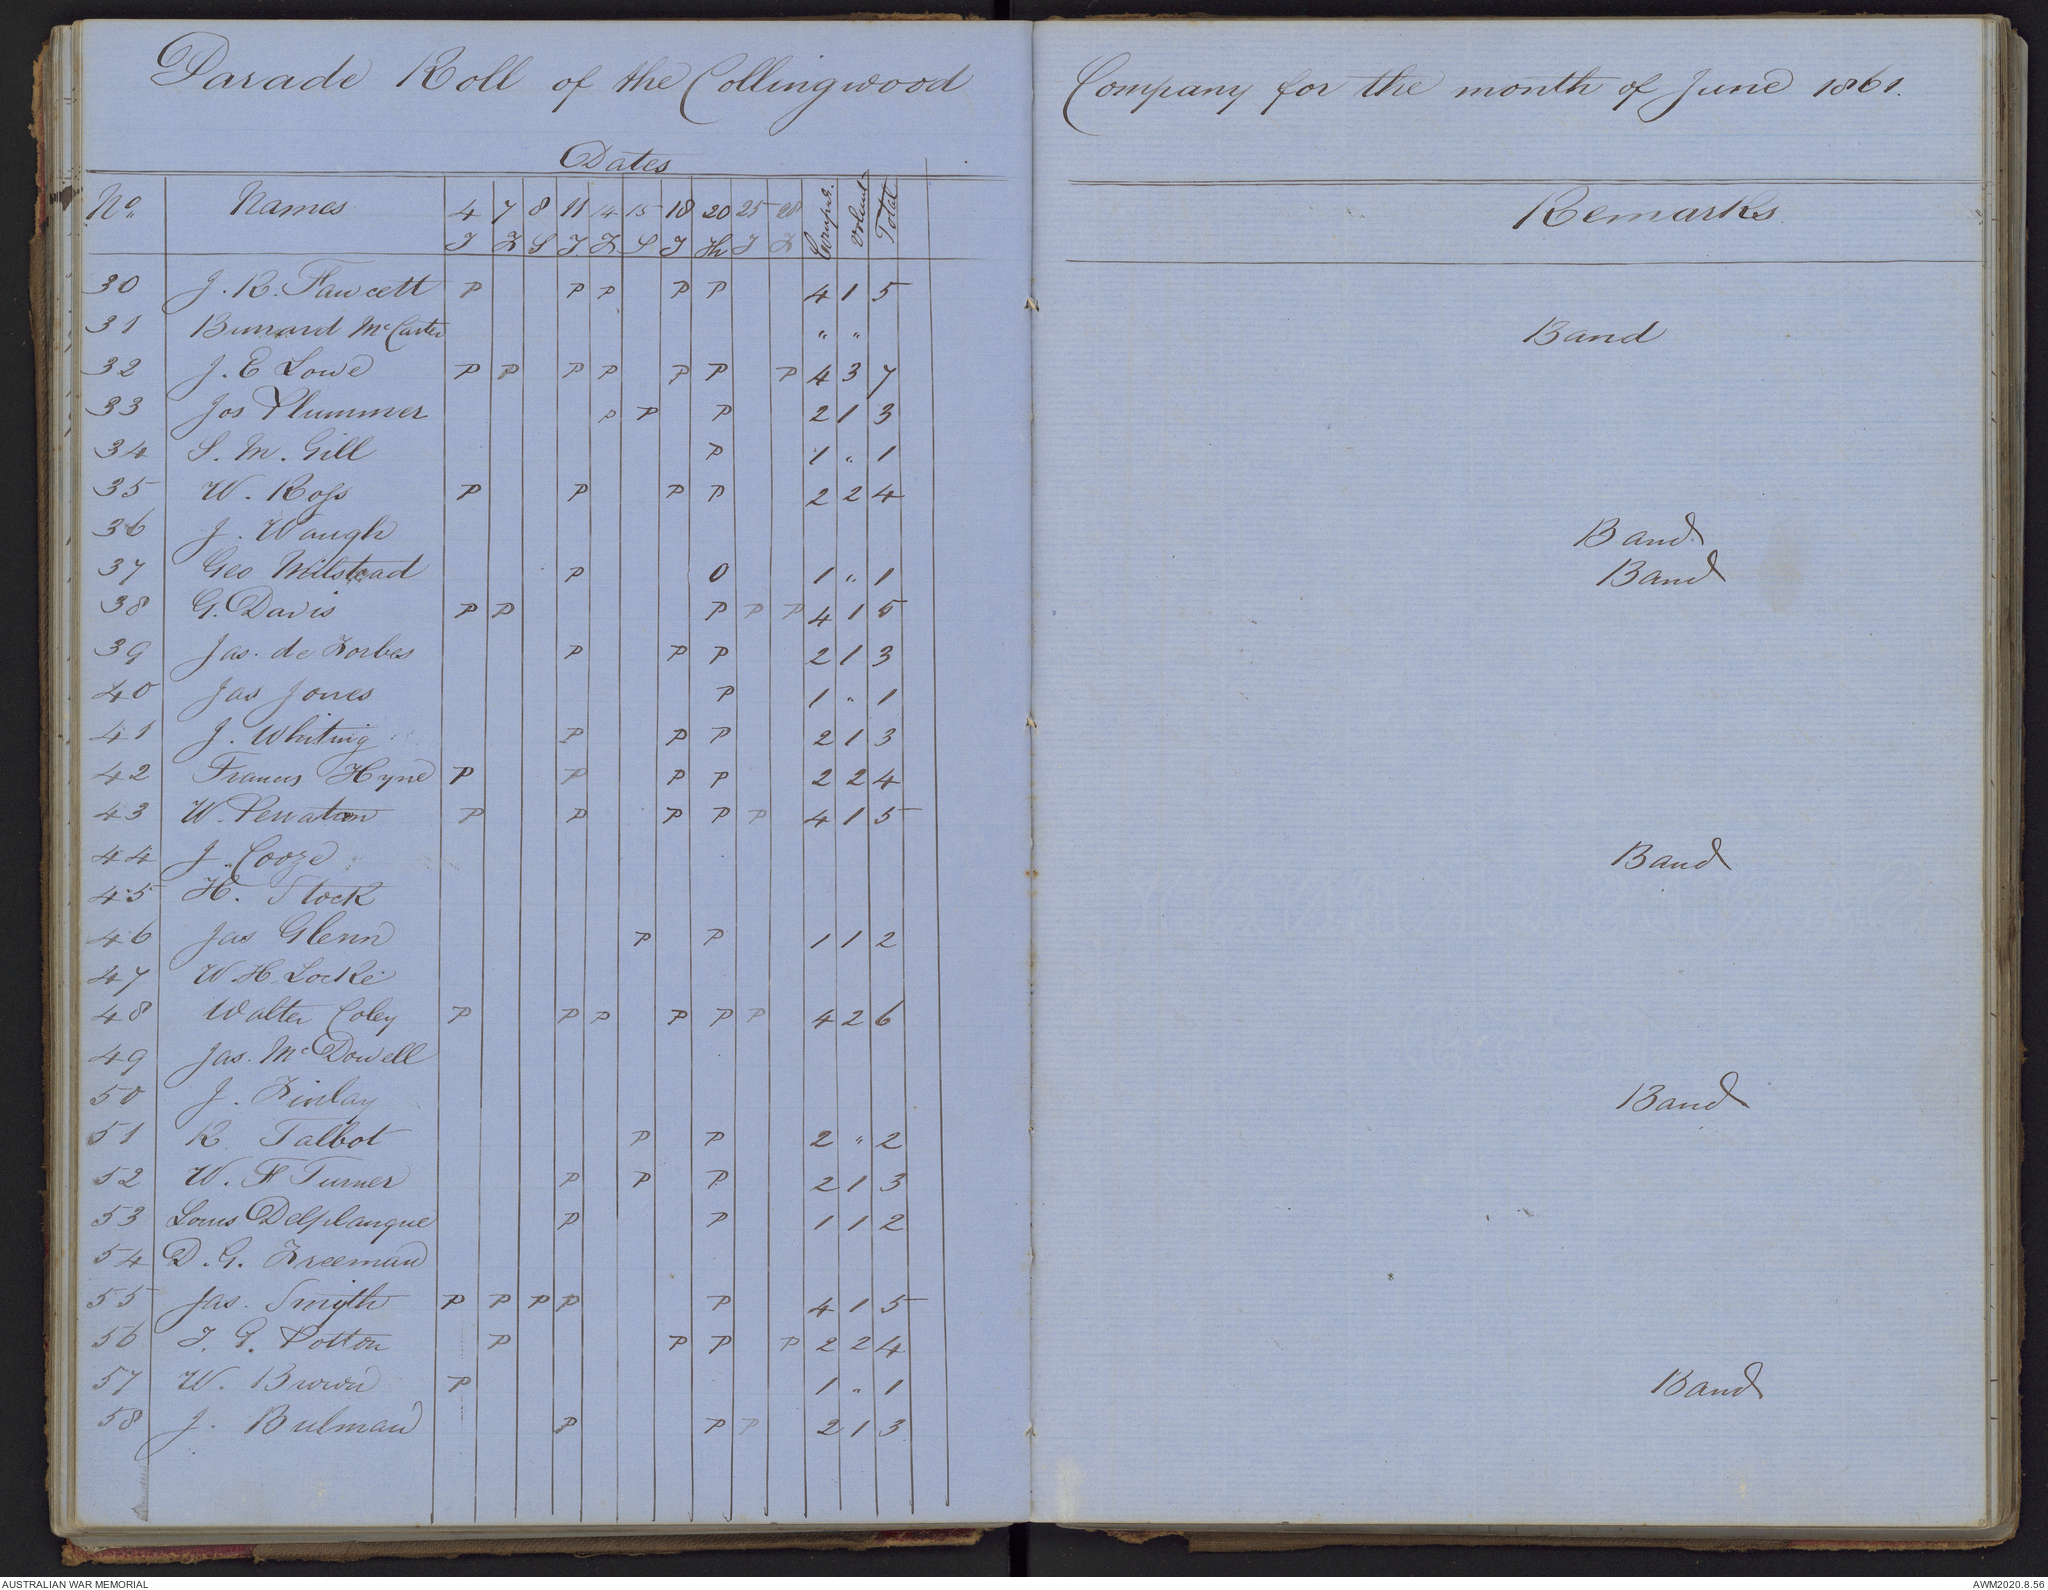 Parade Roll of the Collingwood Company for the month of June 1861.
Dates
No. Names 4 7 8 11 14 15 18 20 25 28 Compul. Volunt. Total Remarks
T F S T F S T Th T F
30 J. R. Fawcett P P P P P 4 1 5
31 Bunard McCarter " " Band
32 J. E Lowe P P P P P P P 4 3 7
33 Jos Plummer P P P 2 1 3
34 S. M. Gill P 1 " 1
35 W. Ross P P P P 2 2 4
36 J. Waugh Band
37 Geo Milstead P 0 1 " 1 Band
38 G. Davis P P P P P 4 1 5
39 Jas. de Forbes P P P 2 1 3
40 Jas Jones P 1 " 1
41 J. Whiting P P P 2 1 3
42 Francis Hyne P P P P 2 2 4
43 W. P P P P P 4 1 5
44 J. Cooze Band
45 H. Stock
46 Jas Glenn P P 1 1 2
47 W. H. Locke
48 Walter Coley P P P P P P 4 2 6
49 Jas. McDowell
50 J. Finlay Band
51 R. Talbot P P 2 " 2
52 W. F Turner P P P 2 1 3
53 Louis Delplanque P P 1 1 2
54 D. G. Freeman
55 Jas. Smyth P P P P P 4 1 5
56 T. G. Potton P P P P 2 2 4
57 W. Brown P 1 " 1 Band
58 J. Bulman P P P 2 1 3
AUSTRALIAN WAR MEMORIAL AWM2020.8.56